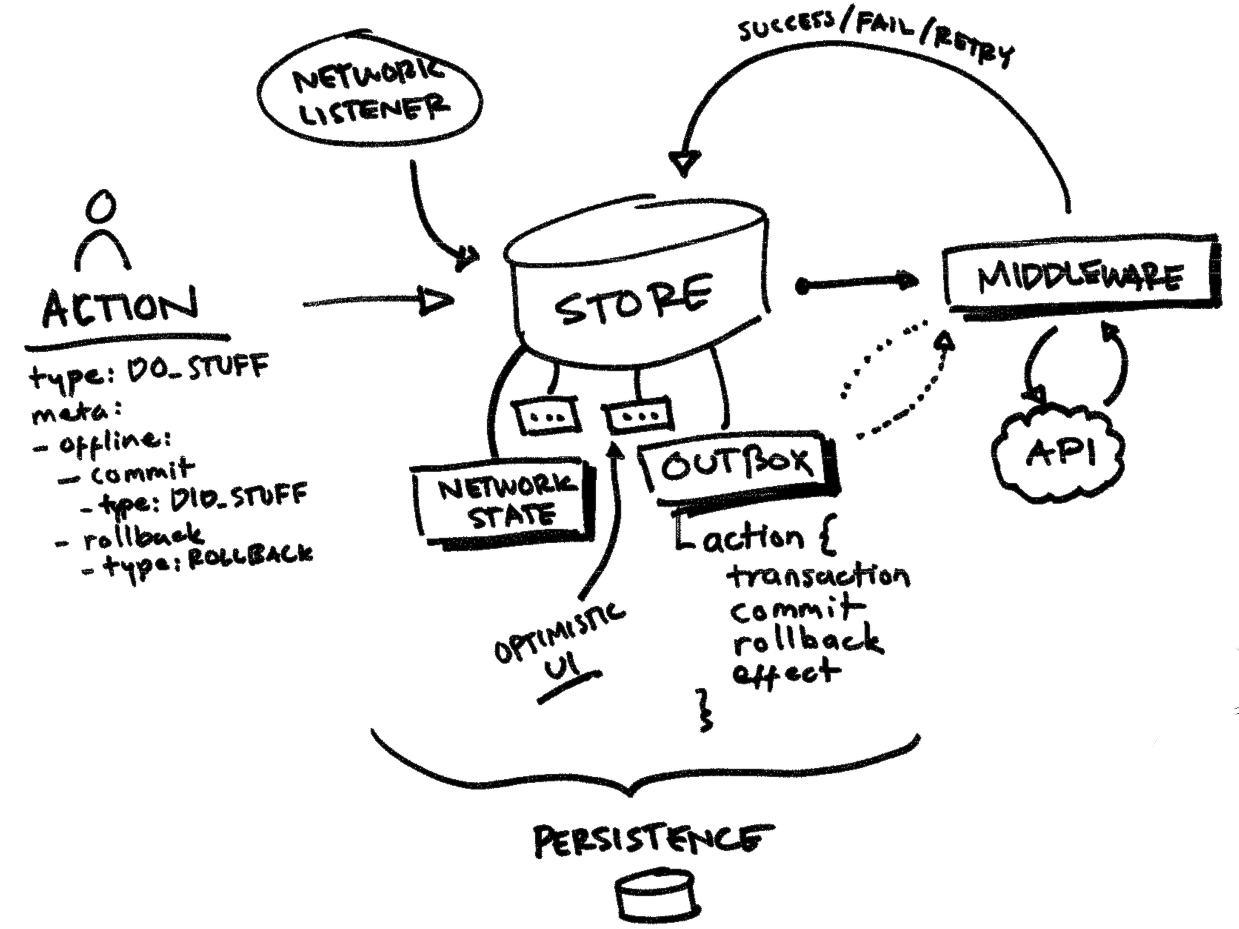 SUCCESS/FAIL/RETRY
NETWORK
LISTENER
ACTION
type: DO_STUFF
meta:
- offline:
- commit
- type: DID_STUFF
- rollback
- type: ROLLBACK
STORE
MIDDLEWARE
API
...
...
NETWORK
STATE
OUTBOX
action {
transaction
commit
rollback
effect
}
OPTIMISTIC
UI
PERSISTENCE